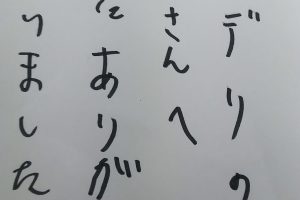 デリの
さんへ
にあり が
いました